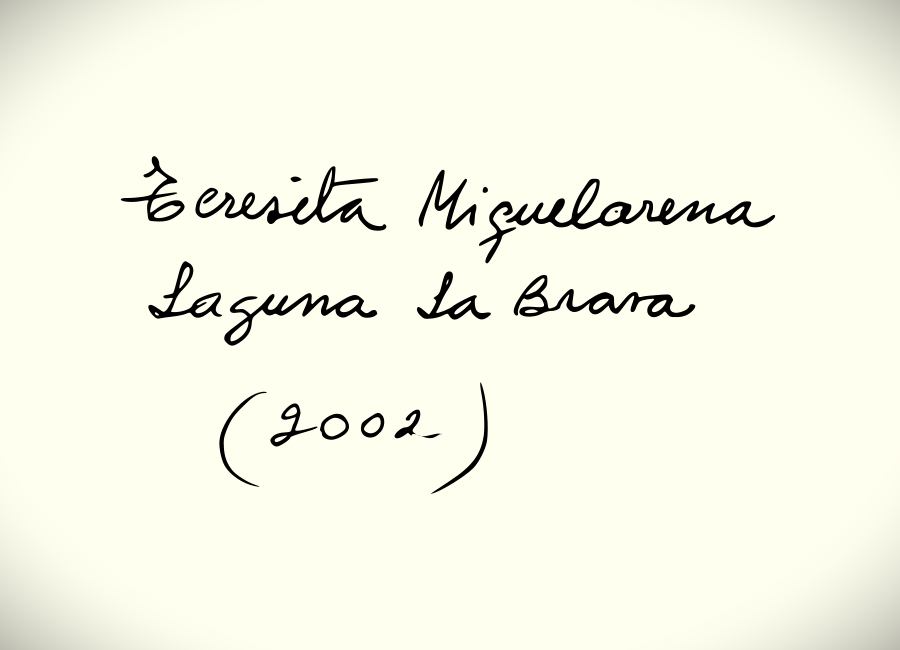 Teresita Miguelarena
Laguna La Brava
(2002)